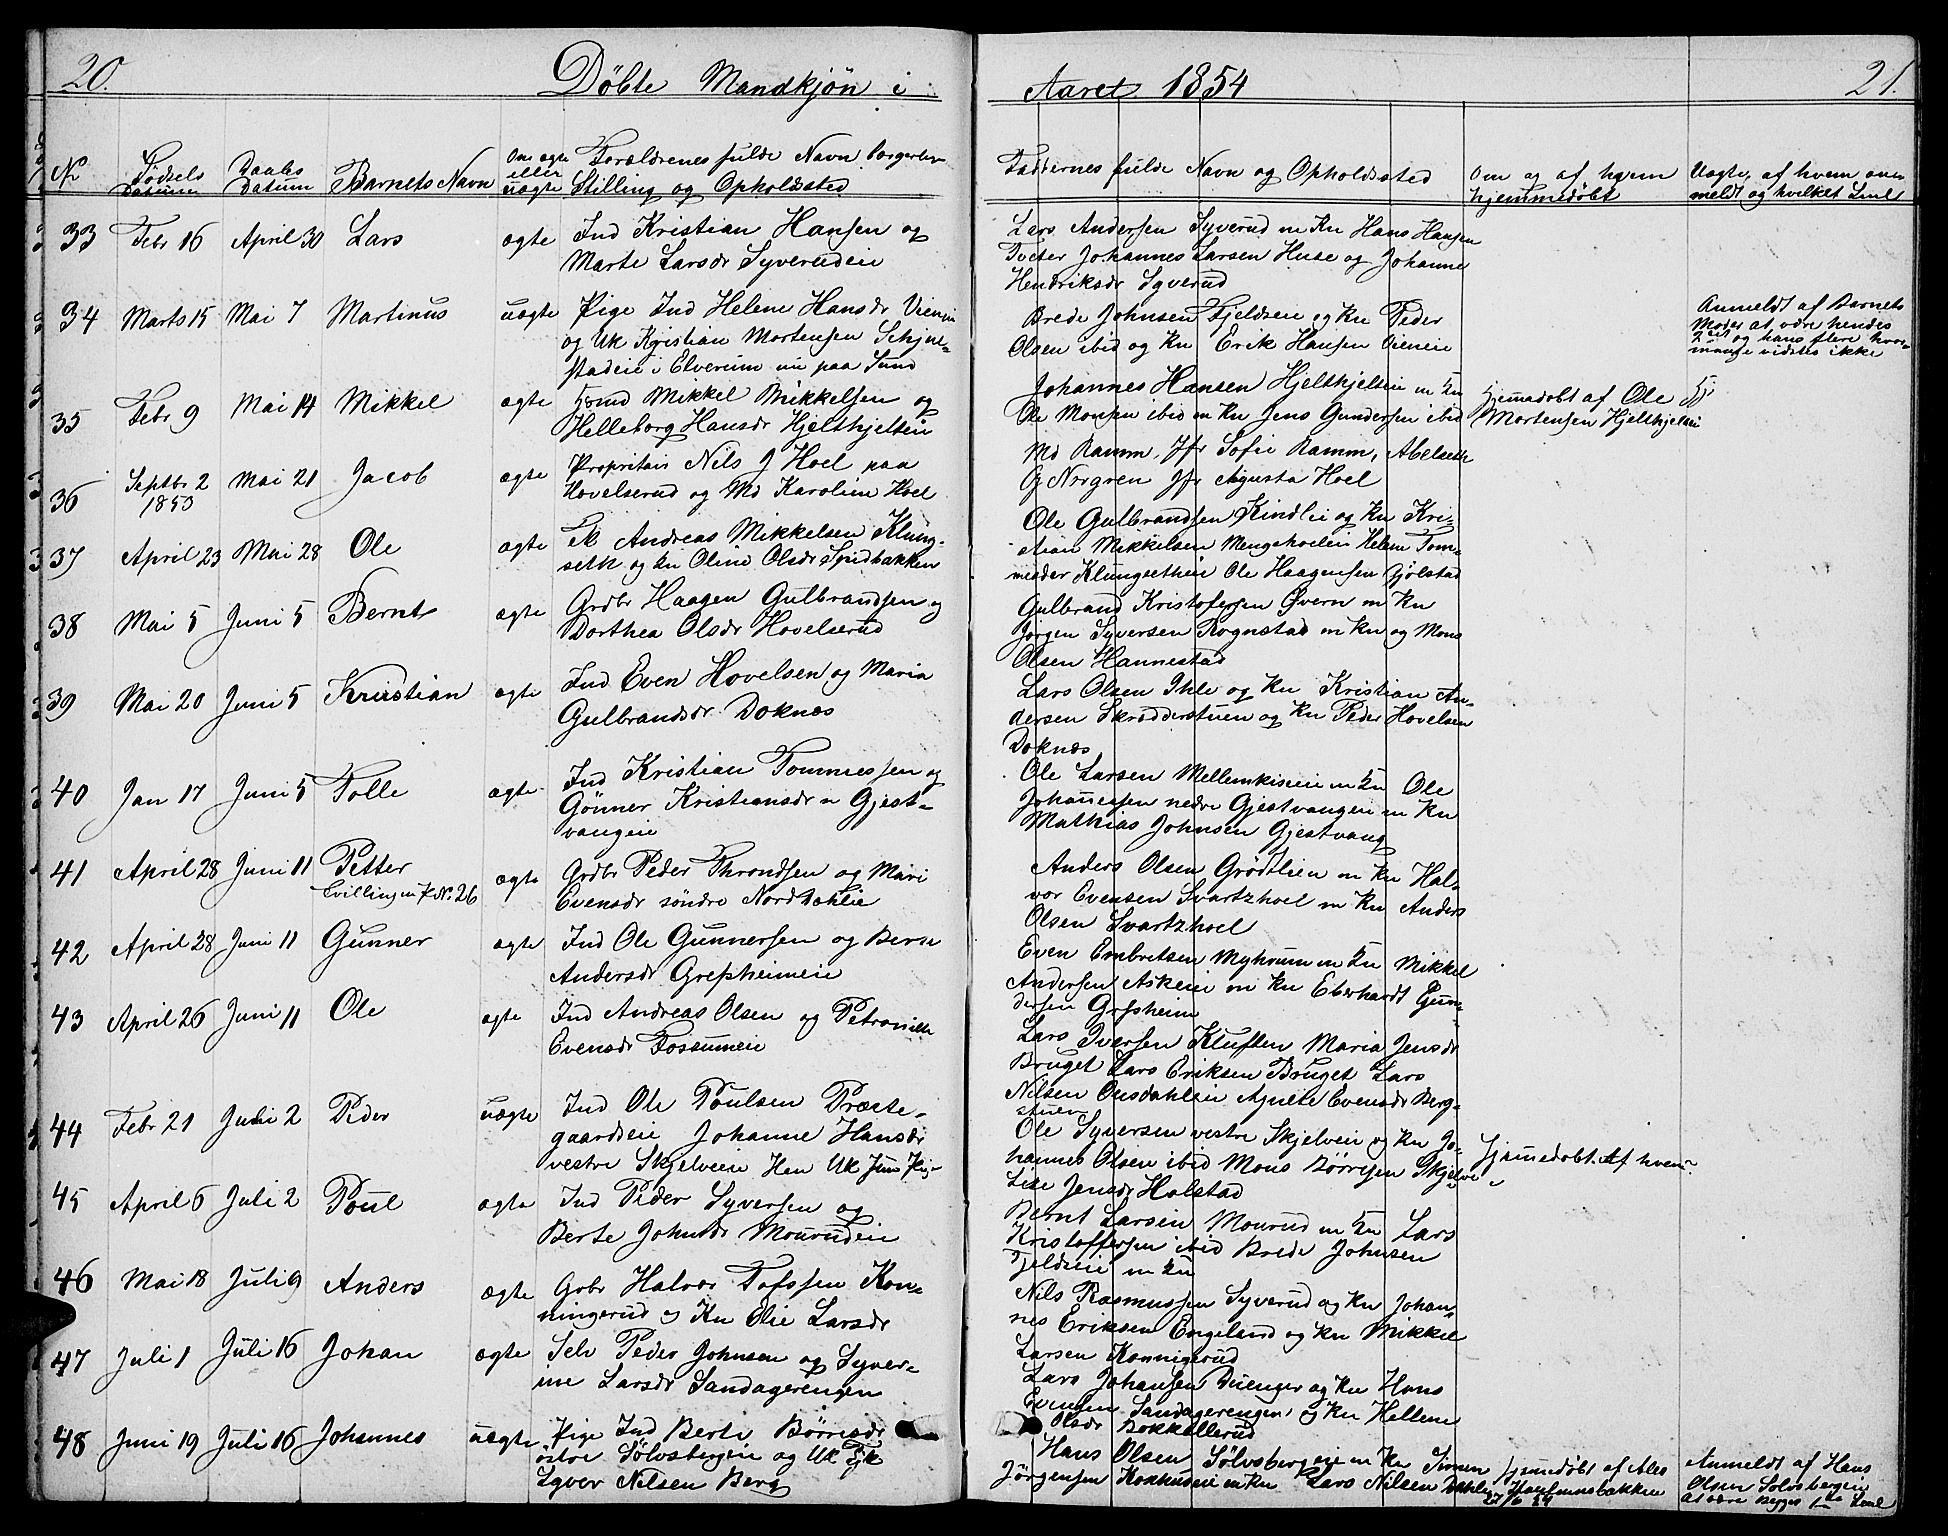 20.
Döbte Mandkjön i
Aaret 1854
21.
No
Födsels Datum
Daabs Datum
Barnets Navn
Om ægte eller uægte
Forældrenes fulde Navn Borgerlige Stilling og Opholdssted
Faddernes fulde Navn og Opholdssted
Om og af hvem hjemmedöbt
Uægte, af hvem anmeldt og hvilket Leiel
33 Febr 16 April 30 Lars ægte Ind Kristian Hansen og
Marte Larsdr Syverudeie
Lars Andersen Syverud m Kn Hans Hansen
Tveter Johannes Larsen Huse og Johanne
Hendriksdr Syverud
34 Marts 15 Mai 7 Martinus uægte Pige Ind Helene Hansdr Vieneie
og Uk Kristian Mortensen Schjul-
stadeie i Elverum nu paa Sund
Brede Johnsen Fjeldseie og Kn Peder
Olsen ibid og Kn Erik Hansen Vieneie
Anmeldt af Barnets
Moder at være hendes
2det og hans flere hvor-
mange vidstes ikke
35 Febr 9 Mai 14 Mikkel ægte Hsmd Mikkel Mikkelsen og
Helleborg Hansdr Hjelthjelteie
Johannes Hansen Hjelthjelteie m Kn
Ole Monsen ibid m Kn Jens Gundersen ibid
Hjemmedöbt af Ole
Mortensen Hjelthjelteie
36 Septbr 2 1853 Mai 21 Jacob ægte Propritair Nils J Hoel paa
Hovelserud og Md Karoline Hoel
Md Ramm, Jfr Sofie Ramm, Abelseth
Og Norgren Jfr Augusta Hoel
37 April 23 Mai 28 Ole ægte Ek Andreas Mikkelsen Klung-
seth og Kn Oline Olsdr Sondbakken
Ole Gulbrandsen Kindlie og Kn Kri-
stian Mikkelsen Mengshoeleie Helene Tom-
mesdr Klungsetheie Ole Haagensen Gjölstad
38 Mai 5 Juni 5 Bernt ægte Grdbr Haagen Gulbrandsen og
Dorthea Olsdr Hovelserud
Gulbrand Kristofersen Övern m Kn
Jørgen Syversen Rognstad m Kn og Mons
Olsen Hannestad
39 Mai 20 Juni 5 Kristian ægte Ind Even Hovelsen og Maria
Gulbrandsdr Doknæs
Lars Olsen Ihle og Kn Kristian An-
dersen Skrædderstuen og Kn Peder Hovelsen
Doknæs
40 Jan 17 Juni 5 Tolle ægte Ind Kristian Tommessen og
Gönner Kristiansdr n Gjest-
vangeie
Ole Larsen Mellemkiseie m Kn Ole
Johannessen nedre Gjestvangeie m Kn
Mathias Johnsen Gjestvang
41 April 28 Juni 11 Petter
Tvilling m P No 26
ægte Grdbr Peder Throndsen og Mari
Evensdr söndre Norddahlie
Anders Olsen Grödtlien m Kn Hal-
vor Evensen Svartzhoel m Kn Anders
Olsen Svartzhoel
42 April 28 Juni 11 Gunner ægte Ind Ole Gunnersen og Berte
Andersdr Grepsheimeie
Even Embretsen Myhrum m Kn Mikkel
Andersen Askeie m Kn Eberhardt Gun-
dersen Grepsheim
43 April 26 Juni 11 Ole ægte Ind Andreas Olsen og Petronille
Evensdr Fossumeie
Lars Iversen Kluften Maria Jensdr
Bruget Lars Eriksen Bruget Lars
Nilsen Onsdahleie Agnete Evensdr Berg-
stuen
44 Febr 21 Juli 2 Peder uægte Ind Ole Poulsen Præste-
gaardseie Johanne Hansdr
vestre Skjelveie Hen Uk Juns Pige
Ole Syversen vestre Skjelveie og Kn Jo-
hannes Olsen ibid Mons Börresen Skjelve
Lise Jensdr Holstad
Hjemmedöbt. Af hvem?
45 April 6 Juli 2 Poul ægte Ind Peder Syversen og
Berte Johnsdr Mourudeie
Bernt Larsen Mourud m Kn Lars
Kristoffersen ibid Brede Johnsen
Fjeldseie m Kn
46 Mai 18 Juli 9 Anders ægte Grbr Halvor Tofssen Kon-
ningerud og Kn Olie Larsdr
Nils Rasmussen Syverud og Kn Johan-
nes Eriksen Engeland og Kn Mikkel
Larsen Konnigerud
47 Juli 1 Juli 16 Johan ægte Selv Peder Johnsen og Syver-
ine Larsdr Sandagerengen
Lars Johansen Duenger og Kn Hans
Evensen Sandagerengen og Kn Hellene
Olsdr Bokkellerud
48 Juni 19 Juli 16 Johannes uægte Pige Ind Berte Börresdr
östre Sölvsbergeie og Uk Tjk
Syver Nilsen Berg
Hans Olsen Sölvsbergeie m Kn Simen
Jörgensen Konhuseie m Kn Lars Nilsen Dahle
Hjemmedöbt af Ales
Haugunsbakken
27/6 54
Anmeldt af Hans
Olsen Solvsbergeie
at være Begges 1ste Leiel